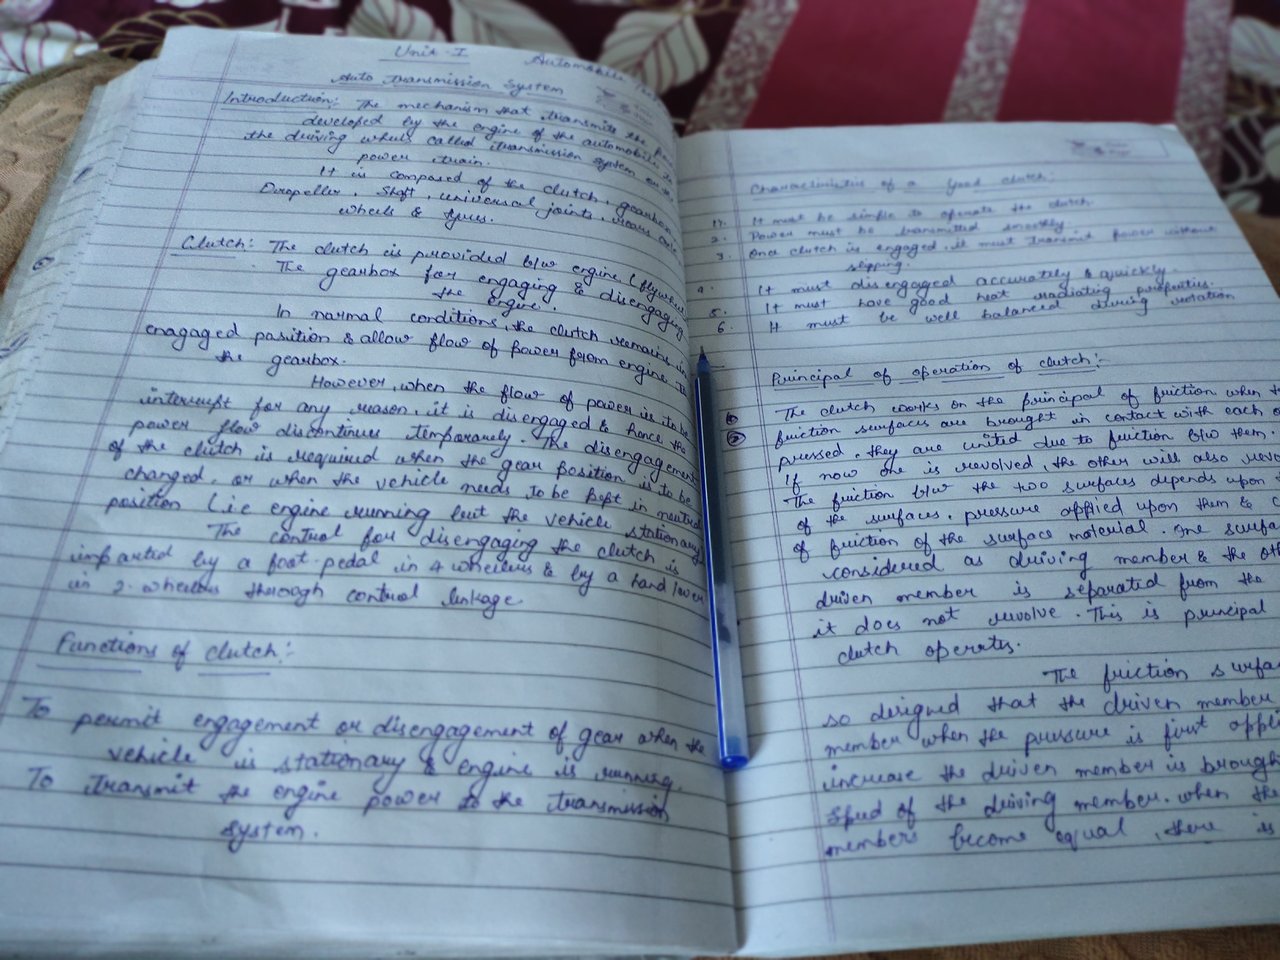 Unit-I
Automobile
Auto Transmission System
Introduction: The mechanism that transmits the
developed by the engine of the automobile to
the driving wheels called transmission system or
power train.
It is composed of the clutch, gearbox
Propeller, Shaft, universal joints,
wheels & tyres.
Clutch: The clutch is provided b/w engine (flywheel
The gearbox for engaging & disengaging
the engine.
In normal conditions, the clutch remains in
enagaged position & allow flow of power from engine to
the gearbox.
However, when the flow of power is to be
interrupt for any reason, it is disengaged & hence the
power flow discontinues temporarely. The disengagement
of the clutch is required when the gear position is to be
changed, or when the vehicle needs to be kept in neutral
position (i.e engine running but the vehicle stationary)
The control for disengaging the clutch is
imparted by a foot-pedal in 4 wheelers & by a hand lever
in 2-wheelers through control linkage.
Functions of clutch:-
To permit engagement or disengagement of gear when the
vehicle is stationary & engine is running.
To transmit the engine power to the transmission
system.
Characteristics of a Good clutch:
1. It must be simple to operate the clutch.
2. Power must be transmitted smoothly
3. Once clutch is engaged, it must transmit power without
slipping.
4. It must disengaged accurately & quickly.
5. It must have good heat radiating properties.
6. It must be well balanced during rotation
Principal of operation of clutch:-
The clutch works on the principal of friction when
friction surfaces are brought in contact with each
pressed, they are united due to friction b/w them.
If now one is revolved, the other will also
The friction b/w the two surfaces depends upon
of the surfaces, pressure applied upon them &
of friction of the surface material. One
considered as driving member & the
driven member is separated from the
it does not revolve. This is principal
clutch operates.
The friction
so designed that the driven member
member when the pressure is first
increase the driven member is
speed of the driving member. when the
members become equal, there is